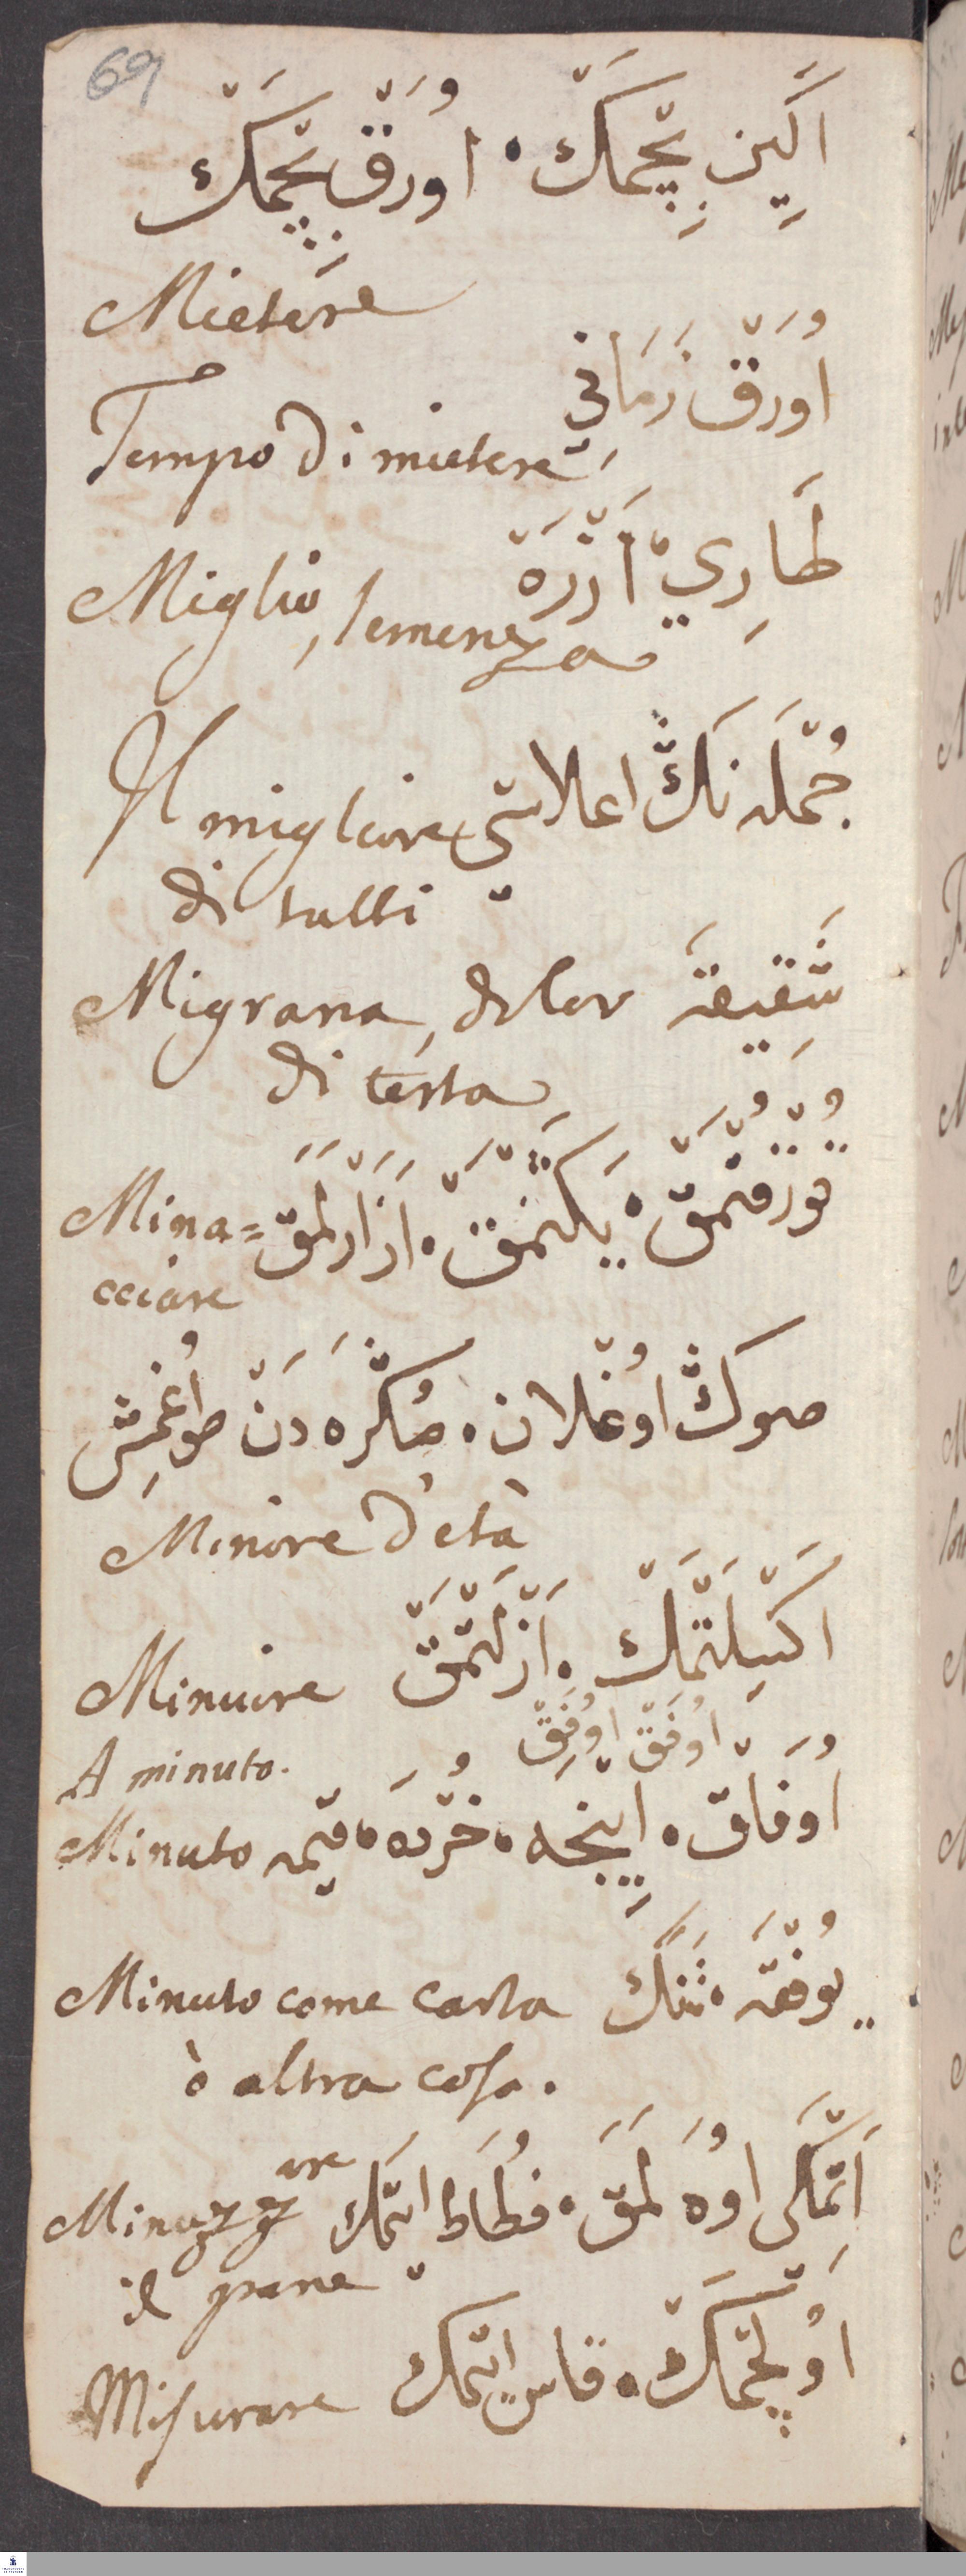 69
اَكِين بِچْمَكْ ٠ اُورَقْ بِچْمَكْ
Mietere
اُورَقْ زَمَانِي
Tempo di mietere
طَارِيْ اَرْزَهْ
Miglio, semenza
جُمْلَه نَكْ اعلاسي
Il migliore
di tutti
شَقِيقَه
Migrana, dolor
di testa
قُورْقُتْمَقْ ٠ ٠ اَزَارْلَمَقْ
Mina=
cciare
صوڭ اوُغْلان ٠ صُڭْرَه دَنْ طوُاغْمِش
Minore d'età
اَكْسِلْتْمَكْ ٠ اَزْلَتْمَقْ
Minuire
اوُفَقْ اوُفَقْ
A minuto.
اوُفَاق ٠ اِينجه ٠ خُرْدَه ٠ قيْمه
Minuto
يُوفْقَه ٠ تَنَكْ
Minuto come carta
ò altra cosa.
اَتْمَكِي اوُه لَمَقْ ٠ ايتْمَكْ
Minuzzare
il pane
اوُلْچْمَكْ ٠ قاس ايتْمَك
Misurare